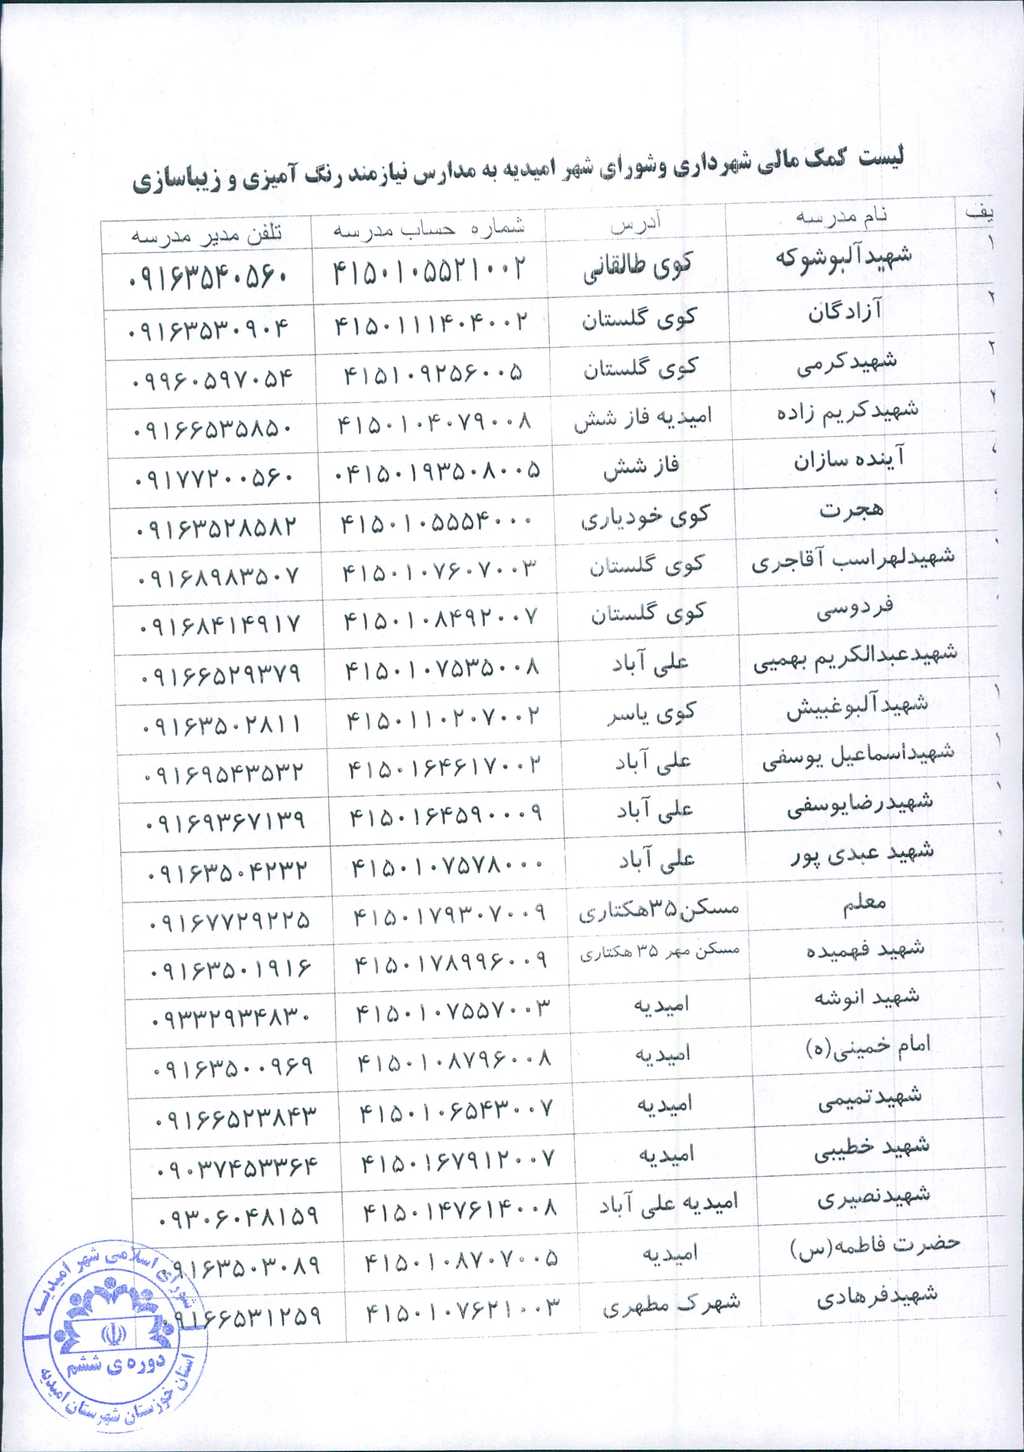 لیست کمک مالی شهرداری وشورای شهر امیدیه به مدارس نیازمند رنگ آمیزی و زیباسازی
یف نام مدرسه آدرس شماره حساب مدرسه تلفن مدیر مدرسه
۱ شهیدآلبوشوکه کوی طالقانی ۴۱۵۰۱۰۵۵۲۱۰۰۲ ۰۹۱۶۳۵۴۰۵۶۰
۲ آزادگان کوی گلستان ۴۱۵۰۱۱۱۴۰۴۰۰۲ ۰۹۱۶۳۵۳۰۹۰۴
شهیدکرمی کوی گلستان ۴۱۵۱۰۹۲۵۶۰۰۵ ۰۹۹۶۰۵۹۷۰۵۴
شهیدکریم زاده امیدیه فاز شش ۴۱۵۰۱۰۴۰۷۹۰۰۸ ۰۹۱۶۶۵۳۵۸۵۰
آینده سازان فاز شش ۰۴۱۵۰۱۹۳۵۰۸۰۰۵ ۰۹۱۷۷۲۰۰۵۶۰
هجرت کوی خودیاری ۴۱۵۰۱۰۵۵۵۴۰۰۰ ۰۹۱۶۳۵۲۸۵۸۲
شهیدلهراسب آقاجری کوی گلستان ۴۱۵۰۱۰۷۶۰۷۰۰۳ ۰۹۱۶۸۹۸۳۵۰۷
فردوسی کوی گلستان ۴۱۵۰۱۰۸۴۹۲۰۰۷ ۰۹۱۶۸۴۱۴۹۱۷
شهیدعبدالکریم بهمیی علی آباد ۴۱۵۰۱۰۷۵۳۵۰۰۸ ۰۹۱۶۶۵۲۹۳۷۹
۱ شهیدآلبوغبیش کوی یاسر ۴۱۵۰۱۱۰۲۰۷۰۰۲ ۰۹۱۶۳۵۰۲۸۱۱
۱ شهیداسماعیل یوسفی علی آباد ۴۱۵۰۱۶۴۶۱۷۰۰۲ ۰۹۱۶۹۵۴۳۵۳۲
۱ شهیدرضایوسفی علی آباد ۴۱۵۰۱۶۴۵۹۰۰۰۹ ۰۹۱۶۹۳۶۷۱۳۹
شهید عبدی پور علی آباد ۴۱۵۰۱۰۷۵۷۸۰۰۰ ۰۹۱۶۳۵۰۴۲۳۲
معلم مسکن۳۵هکتاری ۴۱۵۰۱۷۹۳۰۷۰۰۹ ۰۹۱۶۷۷۲۹۲۲۵
شهید فهمیده مسکن مهر ۳۵ هکتاری ۴۱۵۰۱۷۸۹۹۶۰۰۹ ۰۹۱۶۳۵۰۱۹۱۶
شهید انوشه امیدیه ۴۱۵۰۱۰۷۵۵۷۰۰۳ ۰۹۳۳۲۹۳۴۸۳۰
امام خمینی(ه) امیدیه ۴۱۵۰۱۰۸۷۹۶۰۰۸ ۰۹۱۶۳۵۰۰۹۶۹
شهیدتمیمی امیدیه ۴۱۵۰۱۰۶۵۴۳۰۰۷ ۰۹۱۶۶۵۲۳۸۴۳
شهید خطیبی امیدیه ۴۱۵۰۱۶۷۹۱۲۰۰۷ ۰۹۰۳۷۴۵۳۳۶۴
شهیدنصیری امیدیه علی آباد ۴۱۵۰۱۴۷۶۱۴۰۰۸ ۰۹۳۰۶۰۴۸۱۵۹
حضرت فاطمه(س) امیدیه ۴۱۵۰۱۰۸۷۰۷۰۰۵ ۹۱۶۳۵۰۳۰۸۹
شهیدفرهادی شهرک مطهری ۴۱۵۰۱۰۷۶۲۱۰۰۳ ۹۱۶۶۵۳۱۲۵۹
شورای اسلامی شهر امیدیه
دوره ی ششم
استان خوزستان شهرستان امیدیه